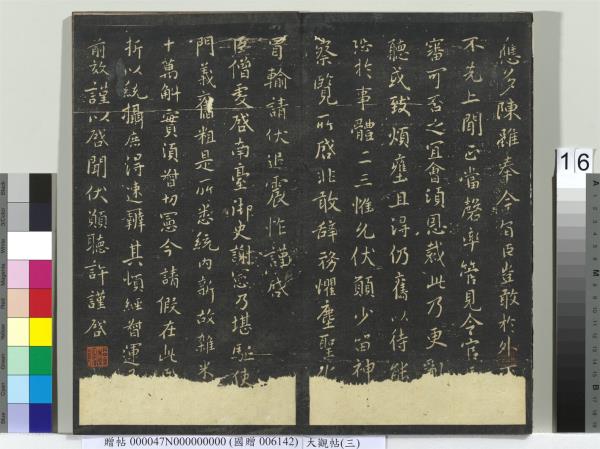 應多陳雖奉令旨臣豈敢於外下
不先上聞正當罄率管見令官
審可否之宜會須恩裁此乃更
聽或致煩壅且得仍舊以待能
於事體二三惟允伏願少留神
察覽所啓非敢辭務懼塵聖
冒輸請伏追震怍謹啓
臣僧虔啓南臺御史謝憲乃堪驅使
門義舊粗是所悉統內新故雜米
十萬斛實須督切憲今請假在此
折以統攝庶得速辦其頃經督運
前放謹以啓聞伏願聽許謹啓
16
贈帖 000047N000000000 (國贈 006142) 天觀帖(三)